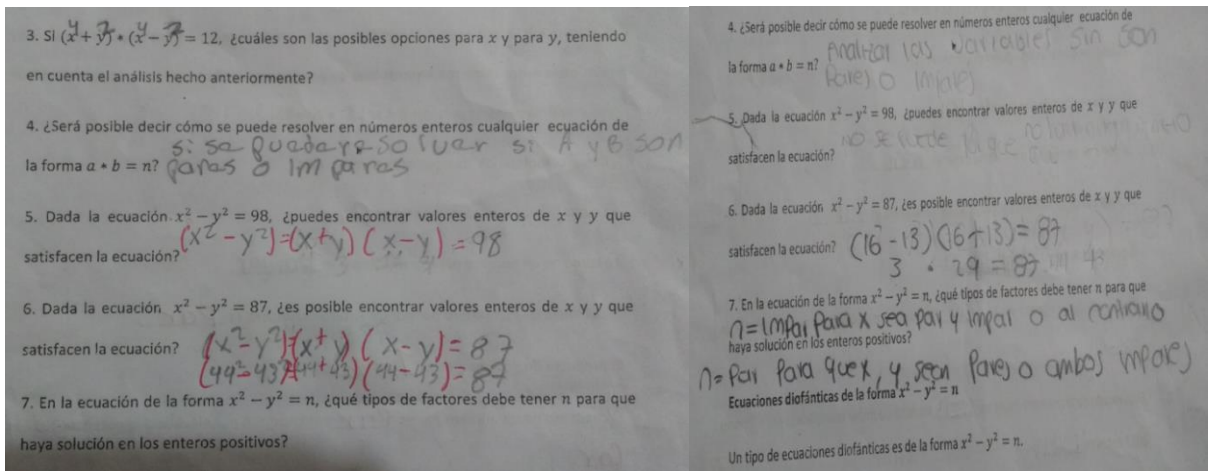 3. Si (x + y) * (x − y) = 12, ¿cuáles son las posibles opciones para x y para y, teniendo
4 2 4 2
en cuenta el análisis hecho anteriormente?
4. ¿Será posible decir cómo se puede resolver en números enteros cualquier ecuación de
si se puede resolver si A y B son
la forma a * b = n? pares o impares
5. Dada la ecuación x² − y² = 98, ¿puedes encontrar valores enteros de x y y que
(x² − y²)=(x+y) (x−y) = 98
satisfacen la ecuación?
6. Dada la ecuación x² − y² = 87, ¿es posible encontrar valores enteros de x y y que
satisfacen la ecuación? (x² − y²)=(x+y) (x−y) = 87
(44²−43²)=(44+43)(44−43)=87
7. En la ecuación de la forma x² − y² = n, ¿qué tipos de factores debe tener n para que
haya solución en los enteros positivos?
4. ¿Será posible decir cómo se puede resolver en números enteros cualquier ecuación de
Analizar las variables sin son
la forma a * b = n? Pares o impares
5. Dada la ecuación x² − y² = 98, ¿puedes encontrar valores enteros de x y y que
no se puede
satisfacen la ecuación?
6. Dada la ecuación x² − y² = 87, ¿es posible encontrar valores enteros de x y y que
satisfacen la ecuación? (16 − 13) (16+13) = 87
3 · 29 = 87
7. En la ecuación de la forma x² − y² = n, ¿qué tipos de factores debe tener n para que
n = Impar Para x sea par y impar o al contrario
haya solución en los enteros positivos?
n = Par Para que x, y sean Pares o ambos impares
Ecuaciones diofánticas de la forma x² − y² = n
Un tipo de ecuaciones diofánticas es de la forma x² − y² = n.